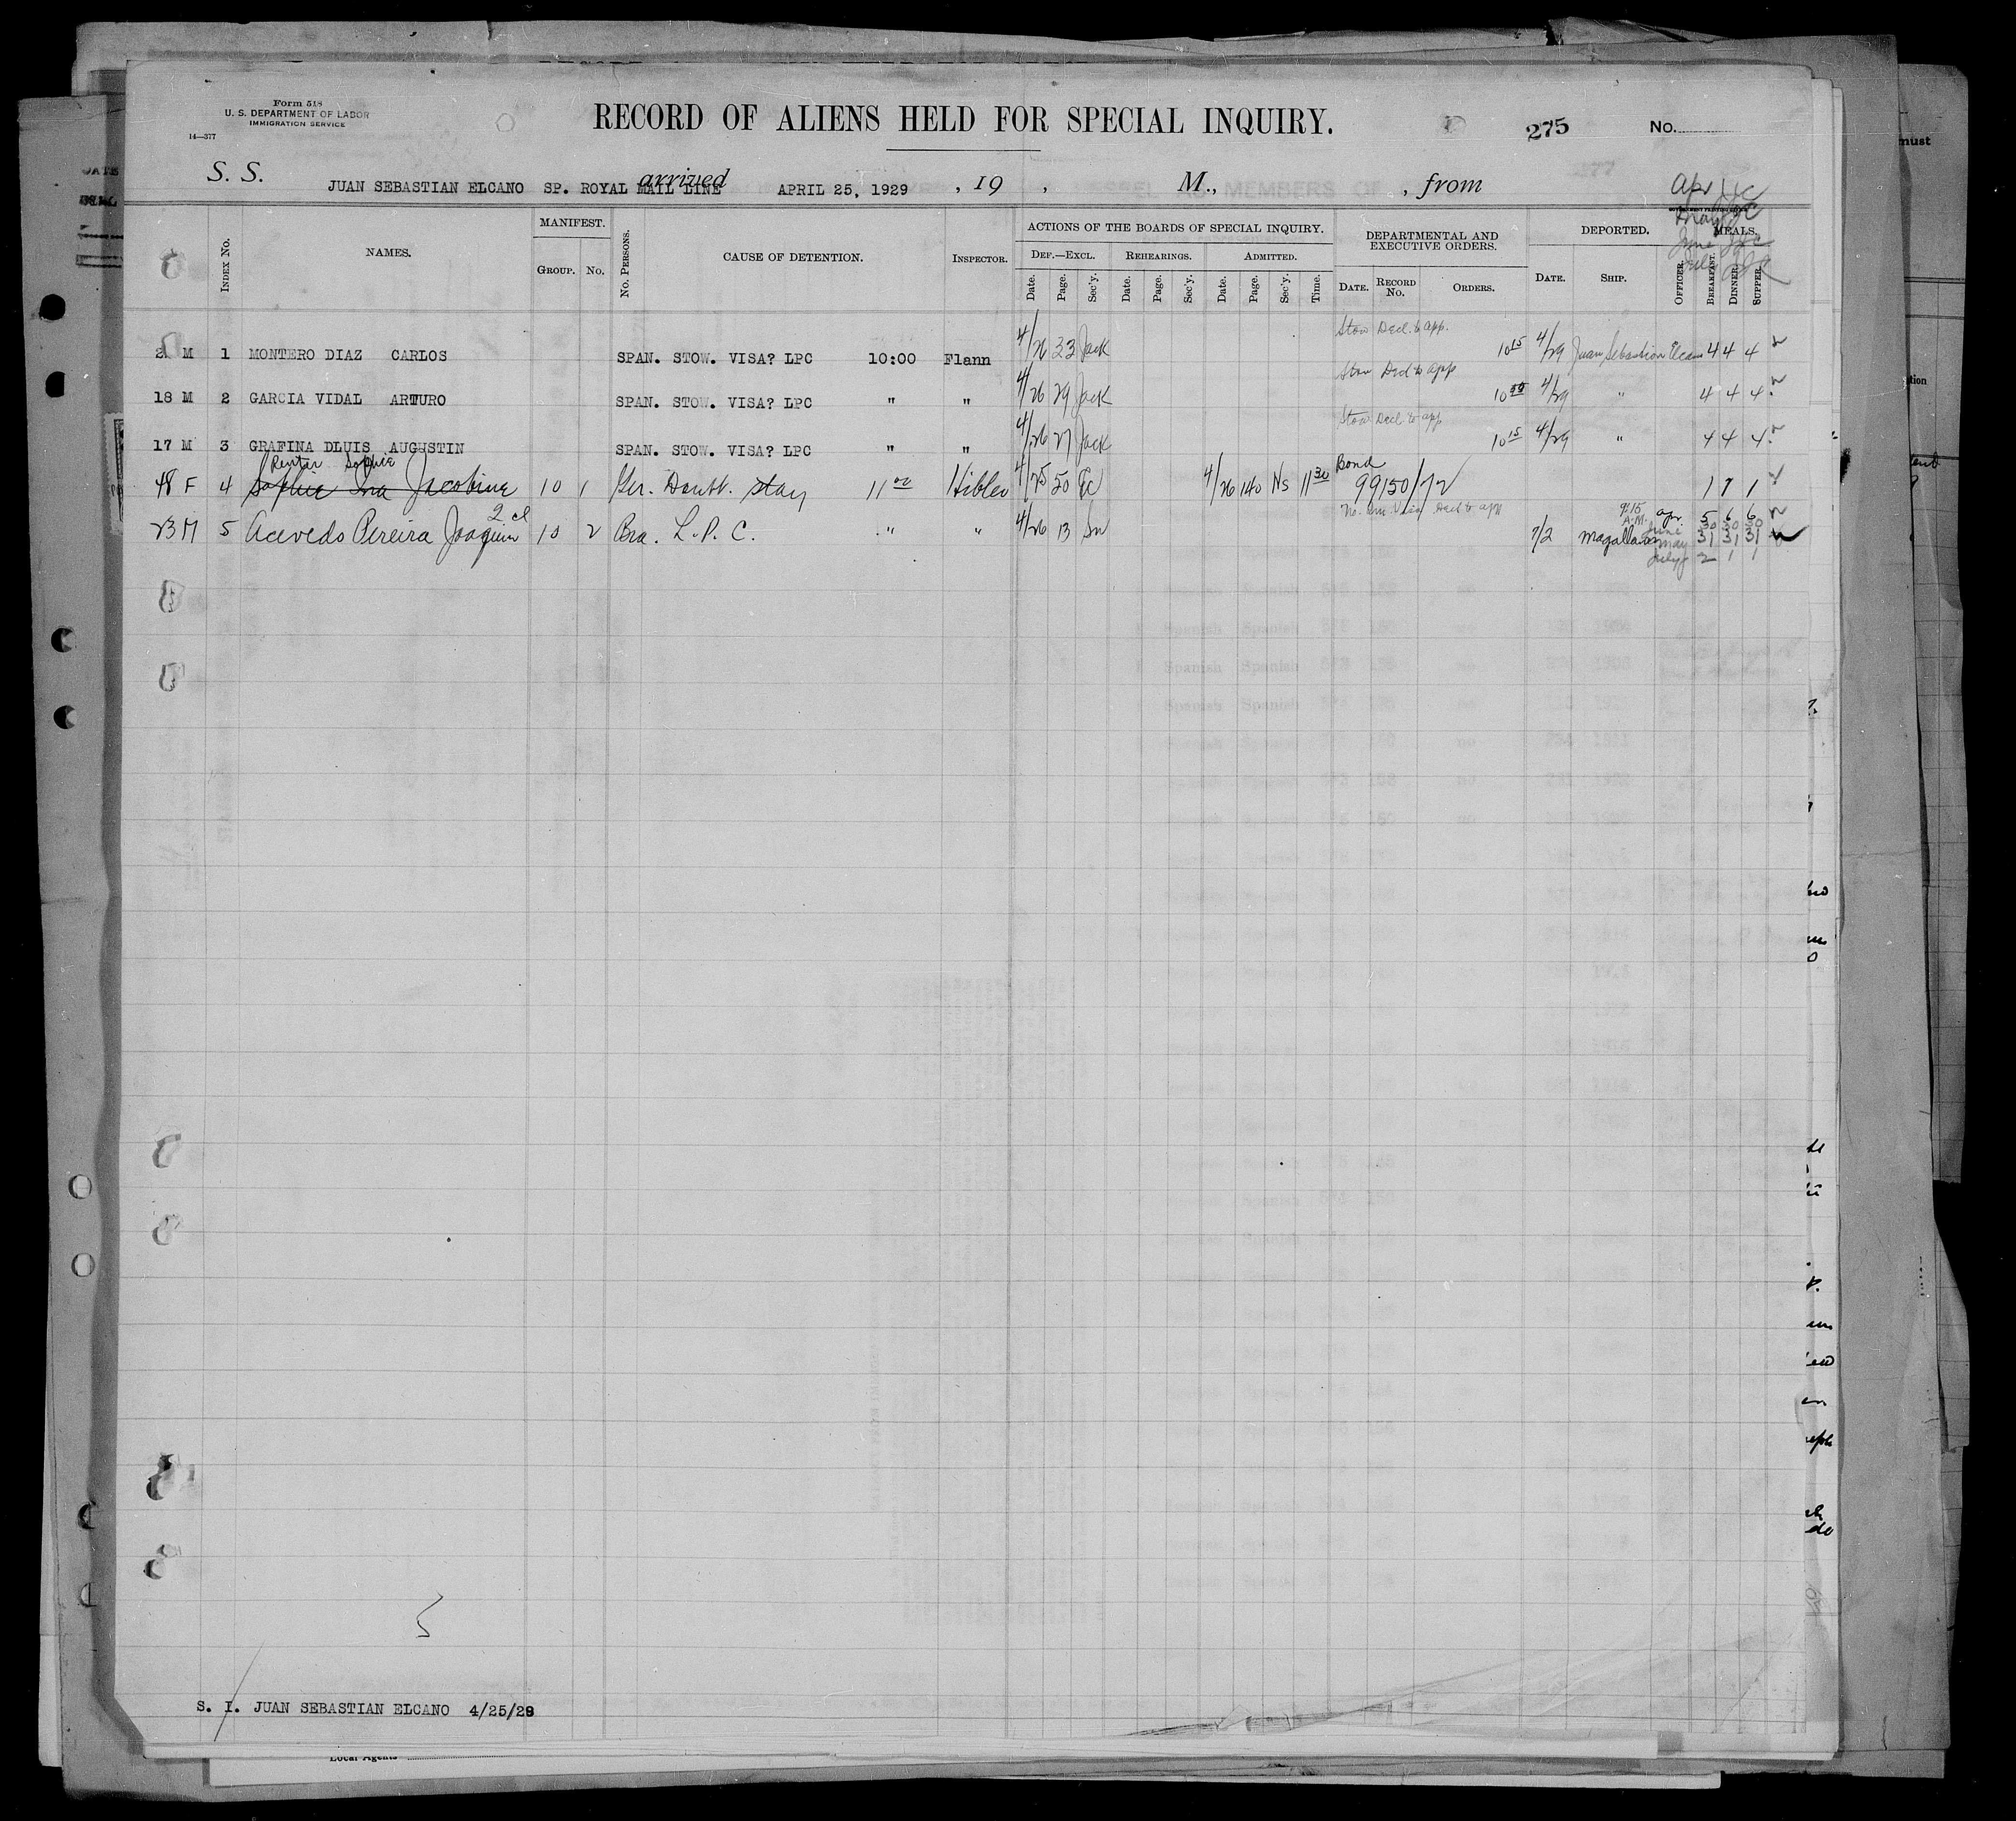 Form 518
U. S. DEPARTMENT OF LABOR
IMMIGRATION SERVICE
14—377
RECORD OF ALIENS HELD FOR SPECIAL INQUIRY.
275 No.
S. S. JUAN SEBASTIAN ELCANO SP. ROYAL MAIL LINE arrived APRIL 25, 1929 , 19 , M., , from
Index No. NAMES. MANIFEST. Group. No. No. Persons. CAUSE OF DETENTION. Inspector. ACTIONS OF THE BOARDS OF SPECIAL INQUIRY. DEPARTMENTAL AND EXECUTIVE ORDERS. DEPORTED. MEALS.
Def.—Excl. Rehearings. Admitted.
Date. Page. Sec'y. Date. Page. Sec'y. Date. Page. Sec'y. Time. Date. Record No. Orders. Date. Ship. Officer. Breakfast. Dinner. Supper.
Stow Decl. to app.
2 M 1 MONTERO DIAZ CARLOS SPAN. STOW. VISA? LPC 10:00 Flann 4/26 33 Jack 10 15 4/29 Juan Sebastian Elcano 4 4 4
Stow Decl to app
18 M 2 GARCIA VIDAL ARTURO SPAN. STOW. VISA? LPC " " 4/26 29 Jack 10 4/29 " 4 4 4
Stow Decl to app
17 M 3 GRAFINA DLUIS AUGUSTIN SPAN. STOW. VISA? LPC " " 4/26 27 Jack 10 15 4/29 " 4 4 4
Sophie
Bond
48 F 4 Sophie Ina Jacobine 10 1 Ger. Doubt. stay 11 00 Hibler 4/25 50 4/26 140 Ns 11 30 99150/72 1 1 1
2 cl
No Imm. Visa Decl to app 9:15 A.M. Apr. 5 6 6
June 30 30 30
23 M 5 Acevedo Pereira Joaquin 10 2 Bra. L. P. C. " " 4/26 13 7/2 Magallanes May 31 31 31
July 2 1 1
5
S. I. JUAN SEBASTIAN ELCANO 4/25/29
Local Agents